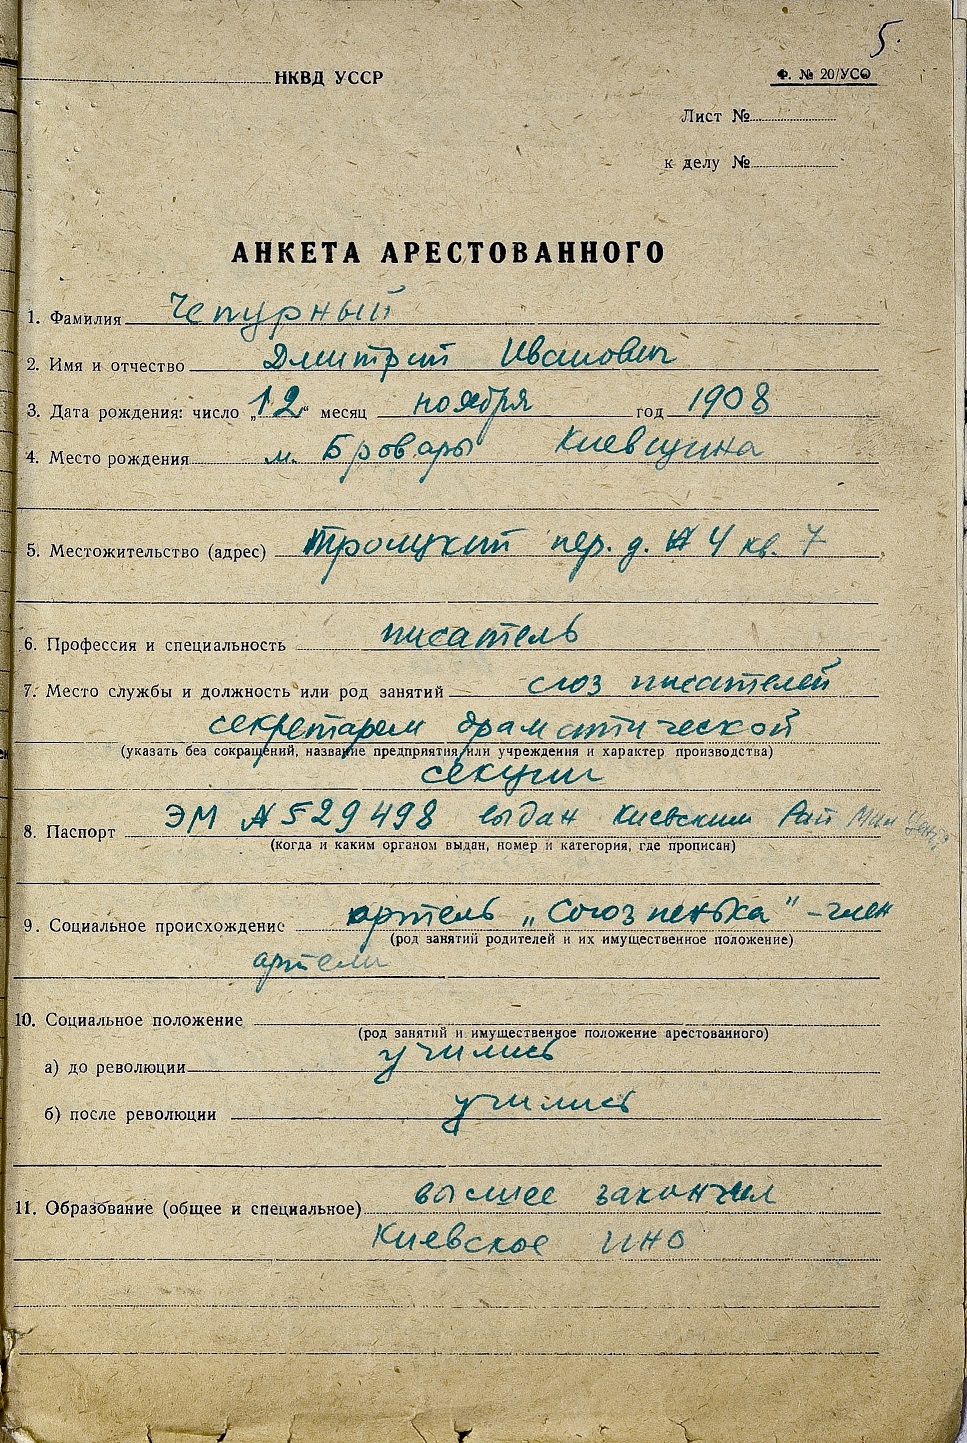 5.
НКВД УССР
Ф. № 20/УСО
Лист №
к делу №
АНКЕТА АРЕСТОВАННОГО
1. Фамилия Чепурный
2. Имя и отчество Дмитрий Иванович
3. Дата рождения: число „12“ месяц ноября год 1908
4. Место рождения м. Бровары Киевщина
5. Местожительство (адрес) Троицкий пер. д. № 4 кв. 7
6. Профессия и специальность писатель
7. Место службы и должность или род занятий союз писателей
секретарем драматической
(указать без сокращений, название предприятия или учреждения и характер производства)
секции
8. Паспорт ЭМ № 529498 выдан Киевским Рай Мил
(когда и каким органом выдан, номер и категория, где прописан)
9. Социальное происхождение артель „Союзпенька" – член
(род занятий родителей и их имущественное положение)
артели
10. Социальное положение
(род занятий и имущественное положение арестованного)
а) до революции учились
б) после революции учились
11. Образование (общее и специальное) высшее закончил
Киевское ИНО